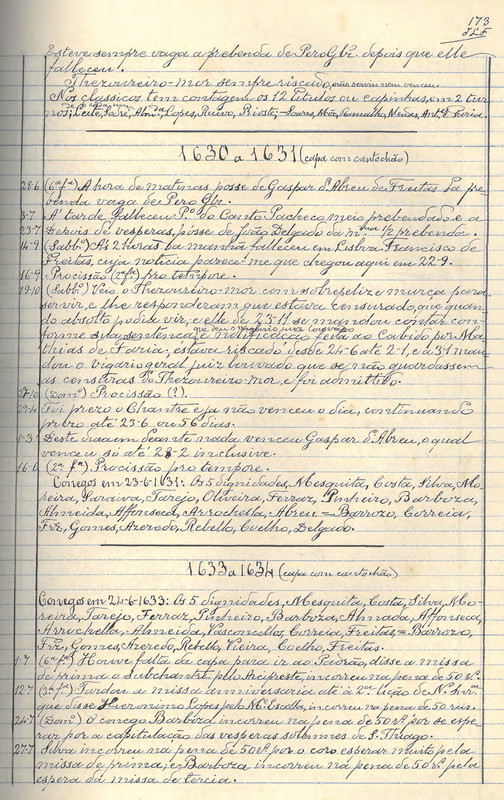 173
Esteve sempre vaga a prebenda de Pero Glz. depois que elle
falleceu.
Thezoureiro-mor sempre riscado, não serviu nem venceu.
Nos classicos tem contagem os 12 titulos ou capinhas, em 2 tur
nos; Leite, José, Lopes, Ruivo, = Soares, Ramalho, Ant.º Faria.
1630 a 1631 (capa com cantochão)
28-6 (6ª fª) A hora de matinas posse de Gaspar d'Abreu de Freitas da pre
benda vaga de Pero Glz.
3-7 A' tarde falleceu P.º do Canto Pacheco meio prebendado e a
23-7 Depois de vesperas, posse de João Delgado da mma ½ prebenda.
14-9 (Sabb.º) A's 2 horas da manhã falleceu em Lisboa Francisco de
Freitas, cuja noticia parece-me que chegou aqui em 22-9.
16-9 Procissão (2ª fª) pro tempore.
19-10 (Sabb.º) Veio o Thezoureiro-mor com sobrepeliz e murça para
servir, e lhe responderam que estava censurado, que quan
do absolto podia vir; e elle de 23-11 se mandou contar con
forme sua sentença, e notificação feita ao Cabido por Ma
thias de Faria; estava riscado desde 24-6 até 2-1, e a 3-1 man
dou o vigario geral juiz louvado que se não guardassem
as censuras do Thezoureiro-mor, e foi admittido.
27-10 (Dom.º) Procissão (?).
29-4 Foi prezo o Chantre e já não venceu o dia, continuando
prezo até 23-6 ou 56 dias.
1-3 Deste dia em deante nada venceu Gaspar d'Abreu, o qual
venceu só até 28-2 inclusive.
16-6 (2ª fª) Procissão pro tempore.
Conegos em 23-6-1631: Os 5 dignidades, Mesquita, Costa, Silva, Mo
reira, Saraiva, Tarejo, Oliveira, Ferraz, Pinheiro, Barboza,
Almeida, Affonseca, Arrochella, Abreu = Barrozo, Correia,
Frz, Gomes, Azeredo, Rebello, Coelho, Delgado.
1633 a 1634 (capa com cantochão)
Conegos em 24-6-1633: Os 5 dignidades, Mesquita, Costa, Silva, Mo
reira, Tarejo, Ferraz, Pinheiro, Barboza, Almada, Affonseca,
Arrochella, Almeida, Vasconcellos, Correia, Freitas = Barrozo,
Frz, Gomes, Azeredo, Rebello, Vieira, Coelho, Freitas.
1-7 (6ª fª) Houve falta da capa para ir ao Padrão, disse a missa
de prima o Subchantre pelo Arcipreste, incorreu na pena de 50 rs.
12-7 (3ª fª) Tardou a missa anniversaria até á 2ª lição de N.ª Snrª
que disse Hieronimo Lopes pelo M.e Escola, incorreu na pena de 50 reis.
24-7 (Dom.º) O conego Barboza incorreu na pena de 50 rs. por se espe
rar por a capitulação das vesperas solemnes de S. Thiago.
27-7 Silva incorreu na pena de 50 rs. por o coro esperar muito pela
missa de prima; e Barboza incorreu na pena de 50 rs. pela
espera da missa de tercia.